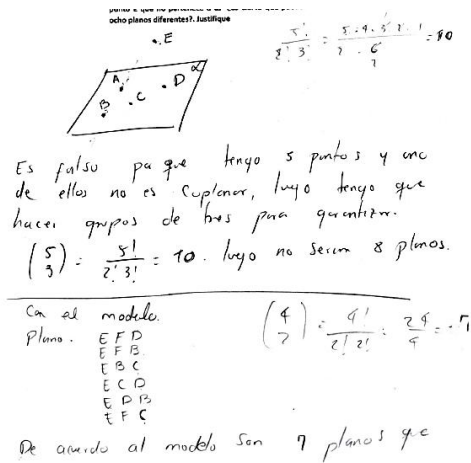 ocho planos diferentes?. Justifique
. E
5! / 2! 3! = 5.4.3.2.1 / 2 . 6 = 10
A
B
C
D
α
Es falso pa que tengo 5 puntos y uno
de ellos no es Coplanar, luego tengo que
hacer grupos de tres para garantizar.
(5 3) = 5! / 2! 3! = 10. luego no serian 8 planos.
Con el modelo.
Plano. E F D
E F B
E B C
E C D
E D B
E F C
(4 2) = 4! / 2! 2! = 24 / 4 = 7
De acuerdo al modelo son 7 planos que